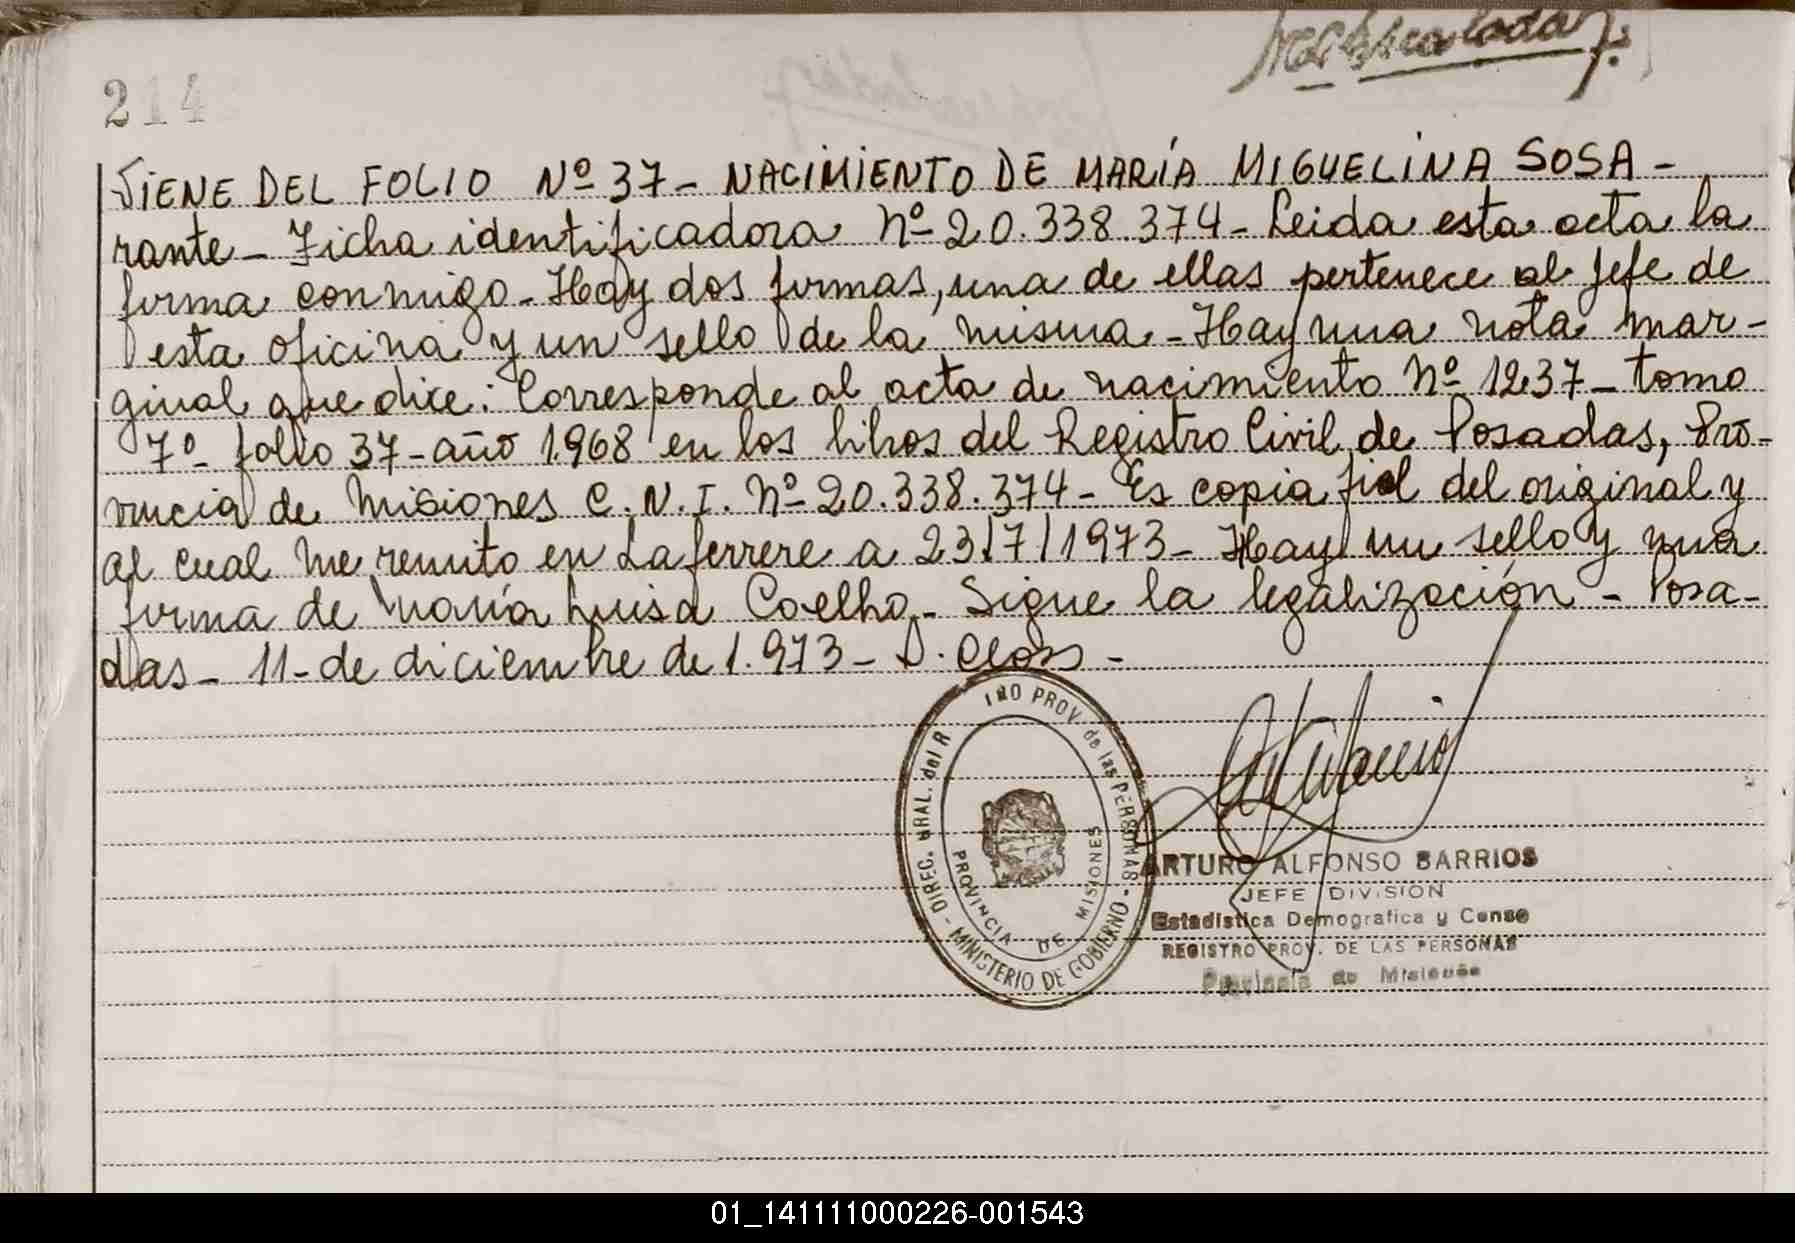 214
VIENE DEL FOLIO Nº 37- NACIMIENTO DE MARÍA MIGUELINA SOSA-
rante- Ficha identificadora Nº 20.338.374- Leida esta acta la
firma conmigo- Hay dos firmas, una de ellas pertenece al Jefe de
esta oficina y un sello de la misma- Hay una nota mar-
ginal que dice: Corresponde al acta de nacimiento Nº 1237- tomo
7º- folio 37- año 1.968 en los libros del Registro Civil de Posadas, Pro-
vincia de Misiones C.N.I. Nº 20.338.374- Es copia fiel del original y
al cual me remito en Laferrere a 23/7/1973- Hay un sello y una
firma de María Luisa Coelho- Sigue la legalización- Posa-
das- 11- de diciembre de 1.973- D.
DIREC. GRAL. del R INO PROV. de las PERSONAS - MINISTERIO DE GOBIERNO -
PROVINCIA DE MISIONES
ARTURO ALFONSO BARRIOS
JEFE DIVISION
Estadistica Demografica y Censo
REGISTRO PROV. DE LAS PERSONAS
Provincia de Misiones
01_141111000226-001543